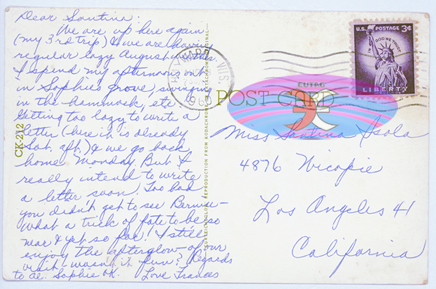 Dear Santina:
We are up here again
(my 3rd trip) & we are having
regular lazy August weather
I spend my afternoons out
in Sophie's grove, swinging
in the hammock, etc.
Getting too lazy to write a
letter (here it is already
Sat. aft.) & we go back
home Monday. But I
really intend to write
a letter soon. Too bad
you didn't get to see Bernie -
What a trick of fate to be so
near & yet so far! I still
enjoy the afterglow - of our
visit! Wasn't it fun? Regards
to Al. Sophie ok. Love Frances
CK-212
POST CARD
U.S. POSTAGE 3¢
IN GOD WE TRUST
LIBERTY
Miss Santina
4876
Los Angeles 41
California